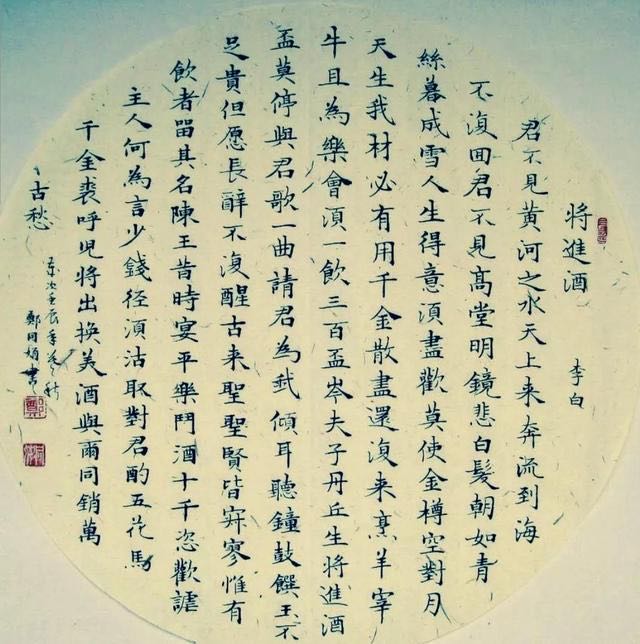 將進酒
李白
君不見黃河之水天上来奔流到海
不復回君不見高堂明鏡悲白髮朝如青
絲暮成雪人生得意須盡歡莫使金樽空對月
天生我材必有用千金散盡還復来烹羊宰
牛且為樂會須一飲三百盃岑夫子丹丘生將進酒
盃莫停與君歌一曲請君為我傾耳聽鐘鼓饌玉不
足貴但愿長辭不復醒古来聖聖賢皆寂寥惟有
飲者留其名陳王昔時宴平樂鬥酒十千恣歡謔
主人何為言少錢径須沽取對君酌五花馬
千金裘呼兒將出換美酒與爾同銷萬
古愁
壬辰年
鄭同書